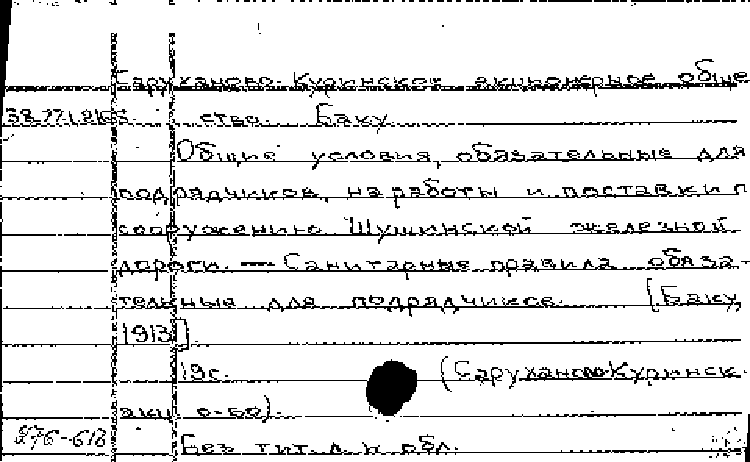 Саруханово-Куринское акционерное обще
ство. Баку
Общие условия, обязательные для
подрядчиков, на работы и поставки п
сооружению Шушинской железной
дороги. — Санитарные правила обяза-
тельные для подрядчиков. [Баку,
1913].
19с. (Саруханово-Куринск.
акц. о-во).
276-613 Без тит. л. и обл.